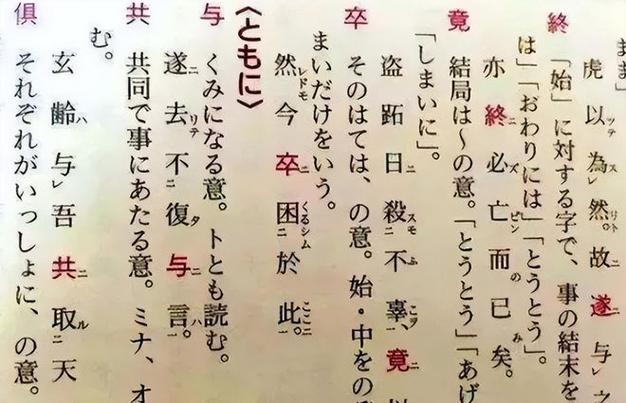 まま」
虎以為然。故遂与之
終
「始」に対する字で、事の結末を
は」「おわりには」「とうとう」。
亦終必亡而已矣。
竟
結局は～の意。「とうとう」「あげ
「しまいに」。
盗跖日殺不辜、竟以
卒
そのはては、の意。始・中をの
まいだけをいう。
然今卒困於此。
〈ともに〉
与
くみになる意。トとも読む。
遂去不復与言。
共
共同で事にあたる意。ミナ、オ
む。
玄齢与吾共取天
倶
それぞれがいっしょに、の意。